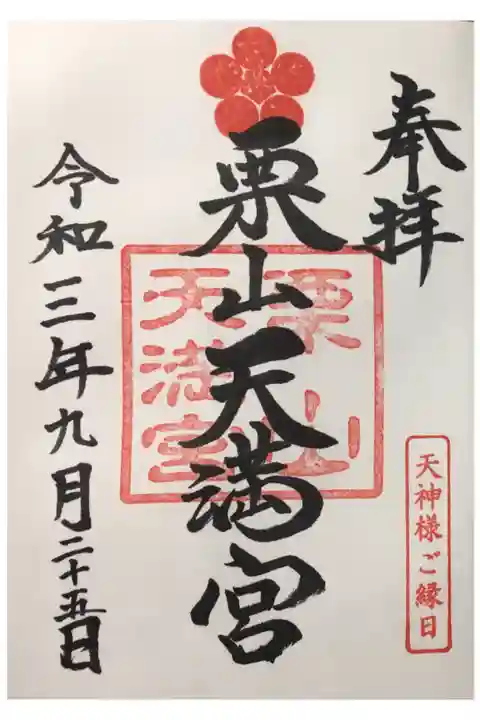 奉拝
天神様ご縁日
栗山天満宮
栗山
天満宮
令和三年九月二十五日